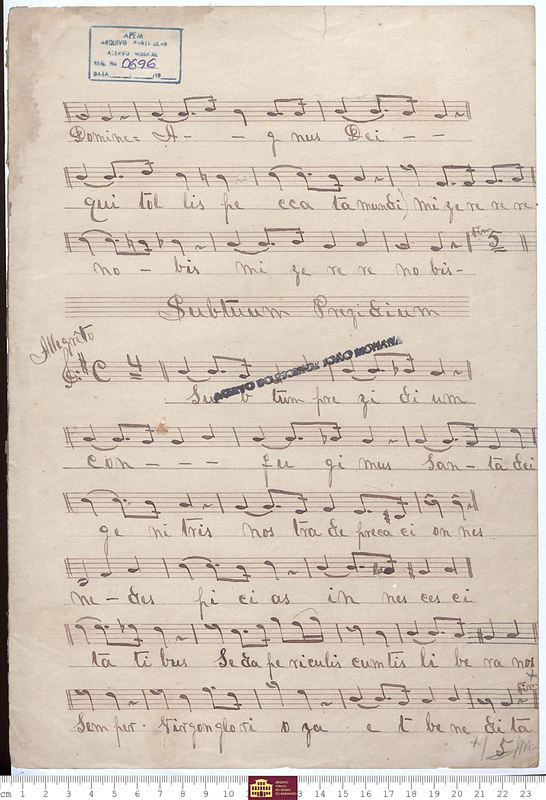 APEM
ARQUIVO PARTICULAR
ACERVO MUSICAL
REG. No 0696
DATA
Domine= A - - g nus Dei - -
qui tol lis pe cca ta mundi) mi ze re re re
no - bis mi ze re re no bis -
fim
Subtuum Prezidium
Allegrêto
C 4
Su b tum pre zi di um
con - - - fu gi mus san - ta dei
ge ni tris nos tra de preca ci on nes
ne - des pi ci as in nes ces ci
ta ti bus Se da pe riculis cumtis li be ra nos
fim
Semper - Virgonglori o za e t be ne di ta
cm 1 2 3 4 5 6 7 8 9 10 11 12 13 14 15 16 17 18 19 20 21 22 23